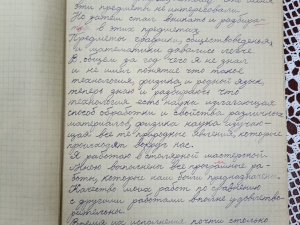 эти предметы не интересовали.
Но затем стал вникать и разбира-
в этих предметах
Предметы графики, обществоведения,
и математики давались легче
В общем за год чего я не знал
и не имел понятие что такое
технология, физика, и родной язык,
теперь знаю и разбираюсь что
технология есть наука излагающая
способ обработки и свойства различных
материалов, физика наука изучаю-
щая все те природные явления, которые
происходят вокруг нас.
Я работаю в столярной мастерской.
Мною выполнены все промыслые ра-
боты, которые нам были предназначены.
Качество моих работ по сравнению
с другими работами вполне удовлетво-
рительны.
Время их исполнения почти столько